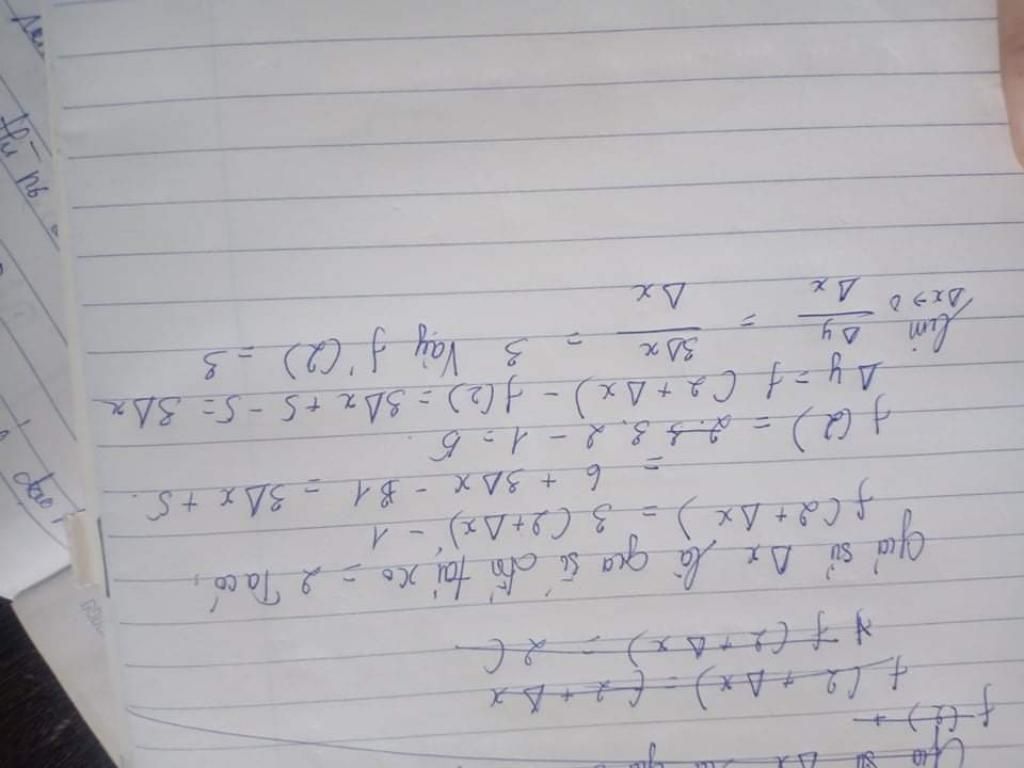 Giả sử Δx là gia
f(2) +
f(2 + Δx) = (2 + Δx
f(2 + Δx) = 2(
Giả sử Δx là gia số của tại x₀ = 2 Ta có,
f(2 + Δx) = 3(2 + Δx) - 1
= 6 + 3Δx - 1 = 3Δx + 5.
f(2) = 2.3 3.2 - 1 = 5.
Δy = f(2 + Δx) - f(2) = 3Δx + 5 - 5 = 3Δx
lim Δx→0 Δy/Δx = 3Δx/Δx = 3 Vậy f'(2) = 3